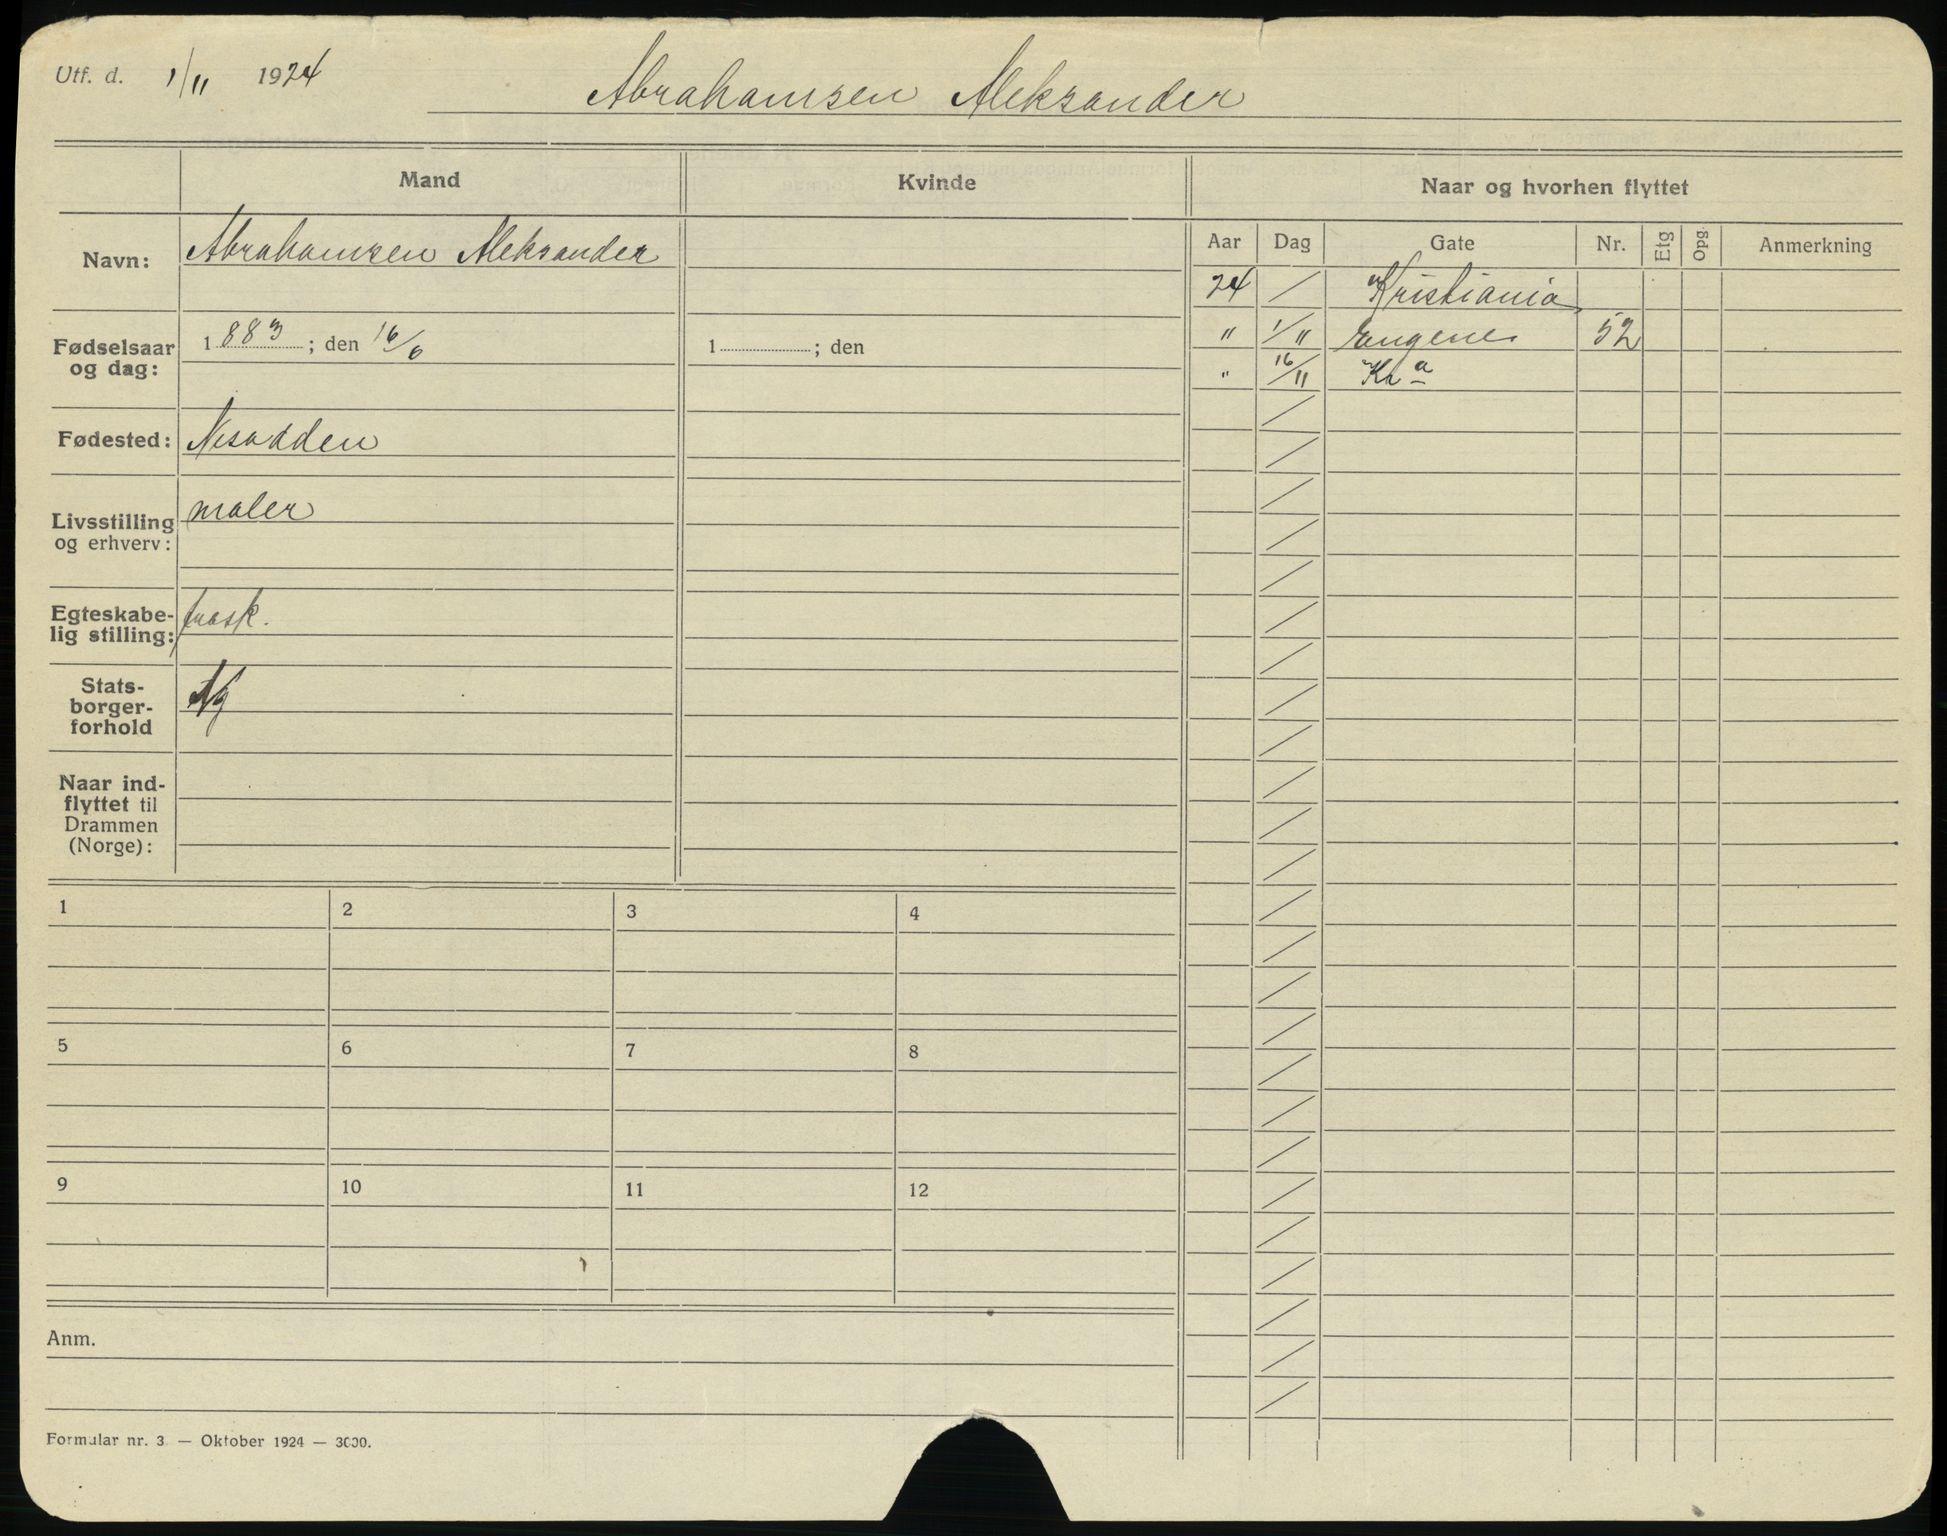 Utf. d. 1/11 1924
Abrahamsen Aleksander
Mand
Kvinde
Naar og hvorhen flyttet
Navn: Abrahamsen Aleksander
Fødselsaar og dag: 1883; den 16/6
1 ; den
Fødested: Nesodden
Livsstilling og erhverv: maler
Egteskabe-
lig stilling: frask.
Stats-
borger-
forhold
Naar ind-
flyttet til
Drammen
(Norge):
Aar Dag Gate Nr. Etg Opg. Anmerkning
24 / Kristiania
" 1/11 Engene 52
" 16/11 Kra
1 2 3 4
5 6 7 8
9 10 11 12
Anm.
Formular nr. 3. — Oktober 1924 — 3000.